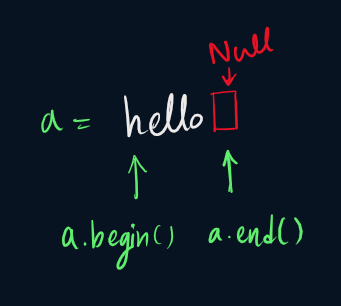 Null
a = hello
a.begin() a.end()